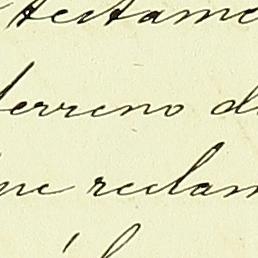 testame
terreno d
ne reclam